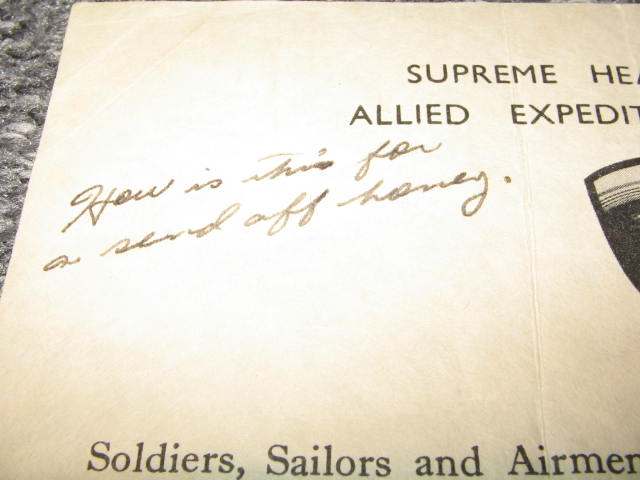 SUPREME HEA
ALLIED EXPEDIT
How is this for
a send off honey.
Soldiers, Sailors and Airmen